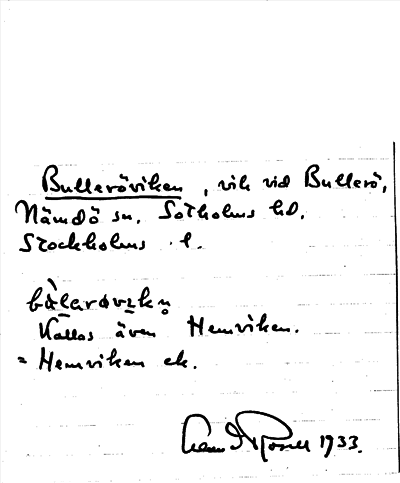 Bulleröviken, vik vid Bullerö,
Nämdö sn. Sotholms hd.
Stockholms l.
Kallas även Hemviken.
= Hemviken ek.
1933.